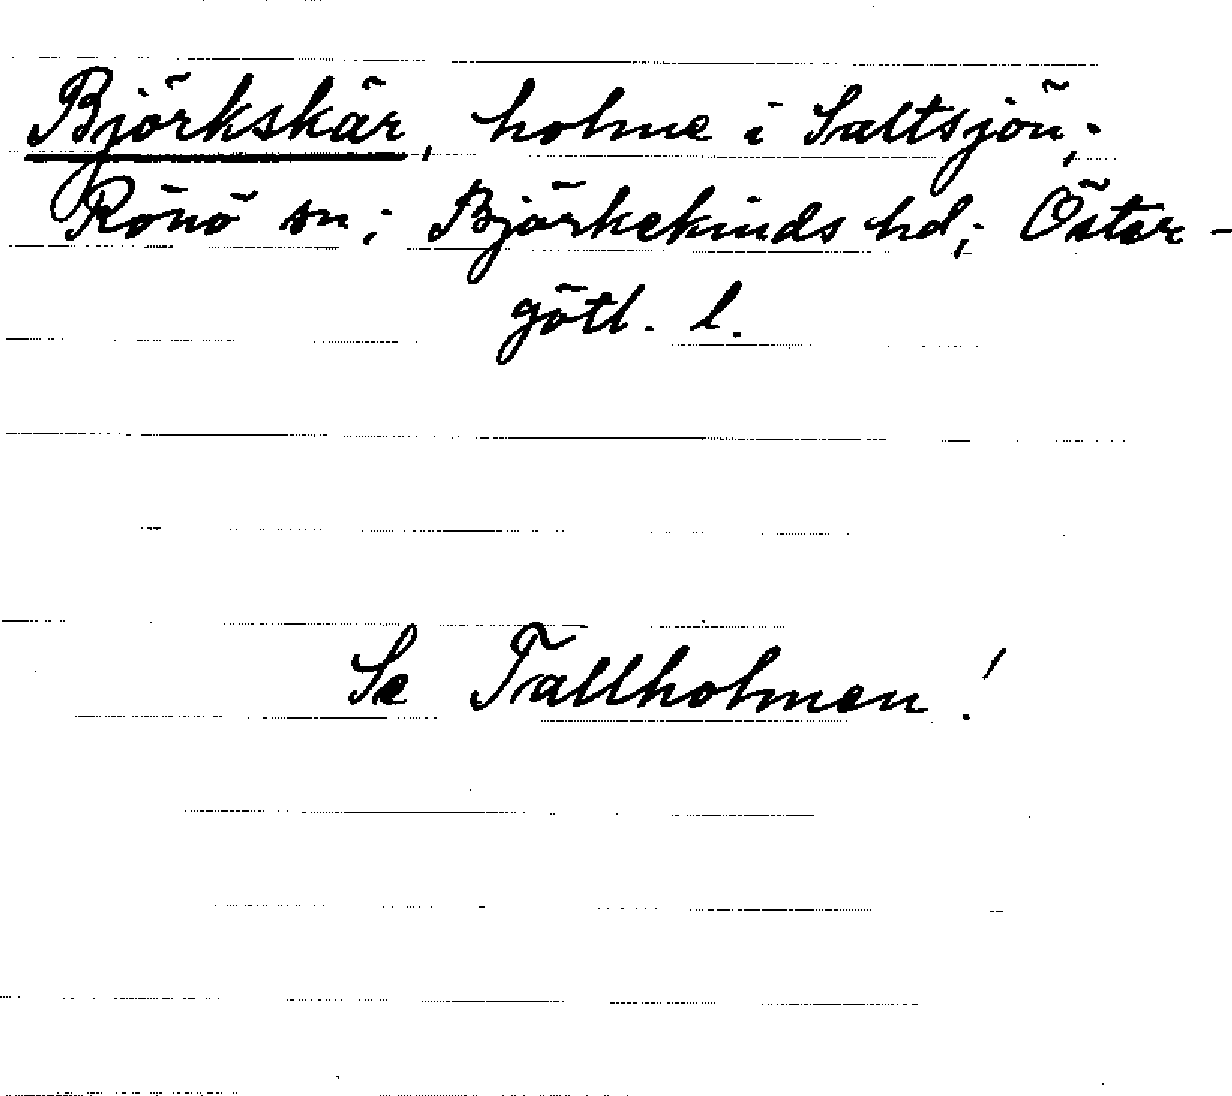 Björkskär, holme i Saltsjön;
Rönö sn; Björkekinds hd; Öster-
götl. l.
Se Tallholmen!